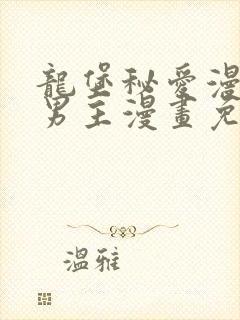 龍堡秘愛漫
男主漫畫免
溫雅